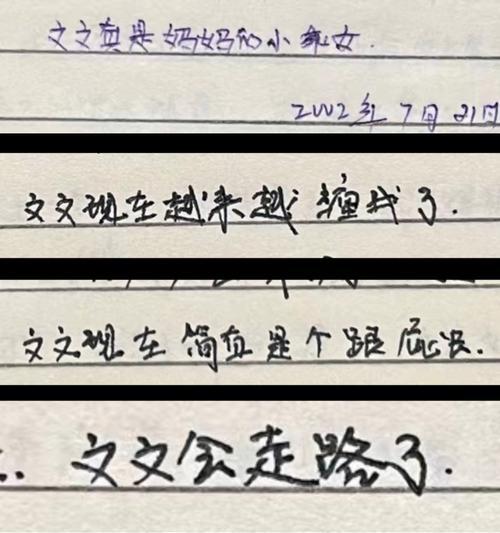 文文真是妈妈的小乖女.
2002年7月21日
文文现在越来越缠我了.
文文现在简直是个跟屁虫.
文文会走路了.